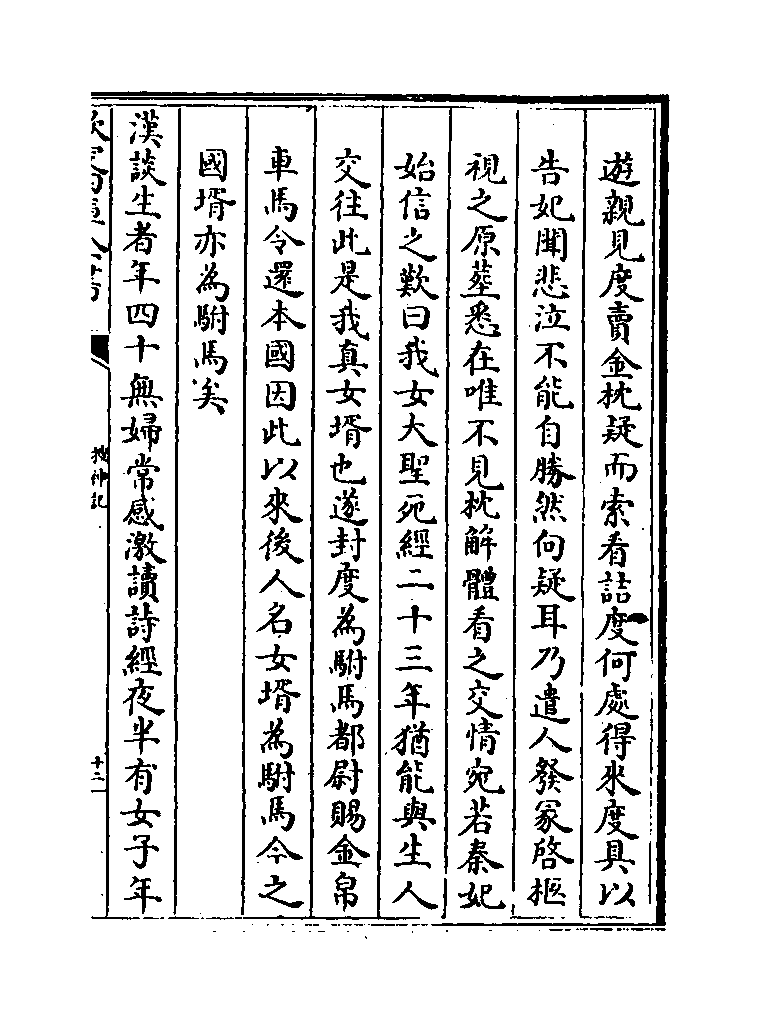 遊親見度賣金枕疑而索看詰度何處得來度具以
告妃聞悲泣不能自勝然向疑耳乃遣人發冡啓柩
視之原葬悉在唯不見枕解體看之交情宛若秦妃
始信之歎曰我女大聖死經二十三年猶能與生人
交往此是我真女壻也遂封度為駙馬都尉賜金帛
車馬令還本國因此以來後人名女壻為駙馬今之
國壻亦為駙馬矣
漢談生者年四十無婦常感激讀詩經夜半有女子年
搜神記
十二